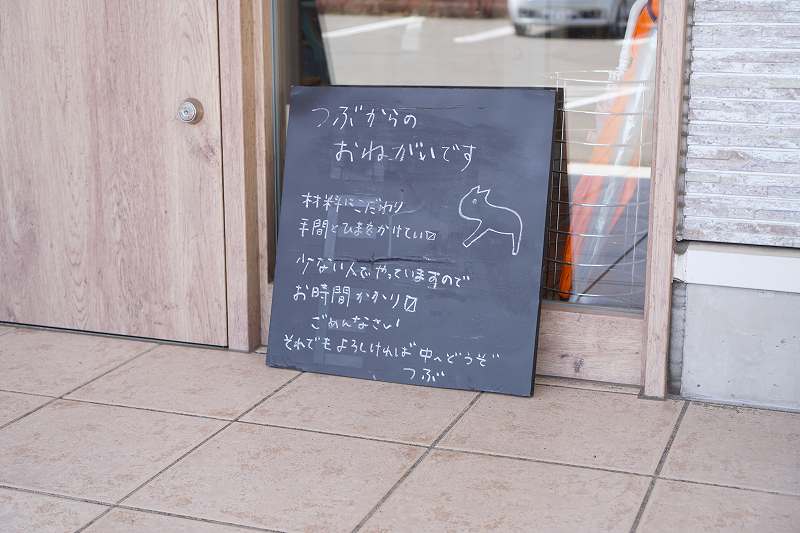 つぶからの
おねがいです
材料にこだわり
手間とひまをかけてい〼
少ない人でやっていますので
お時間かかり〼
ごめんなさい
それでもよろしければ中へどうぞ
つぶ